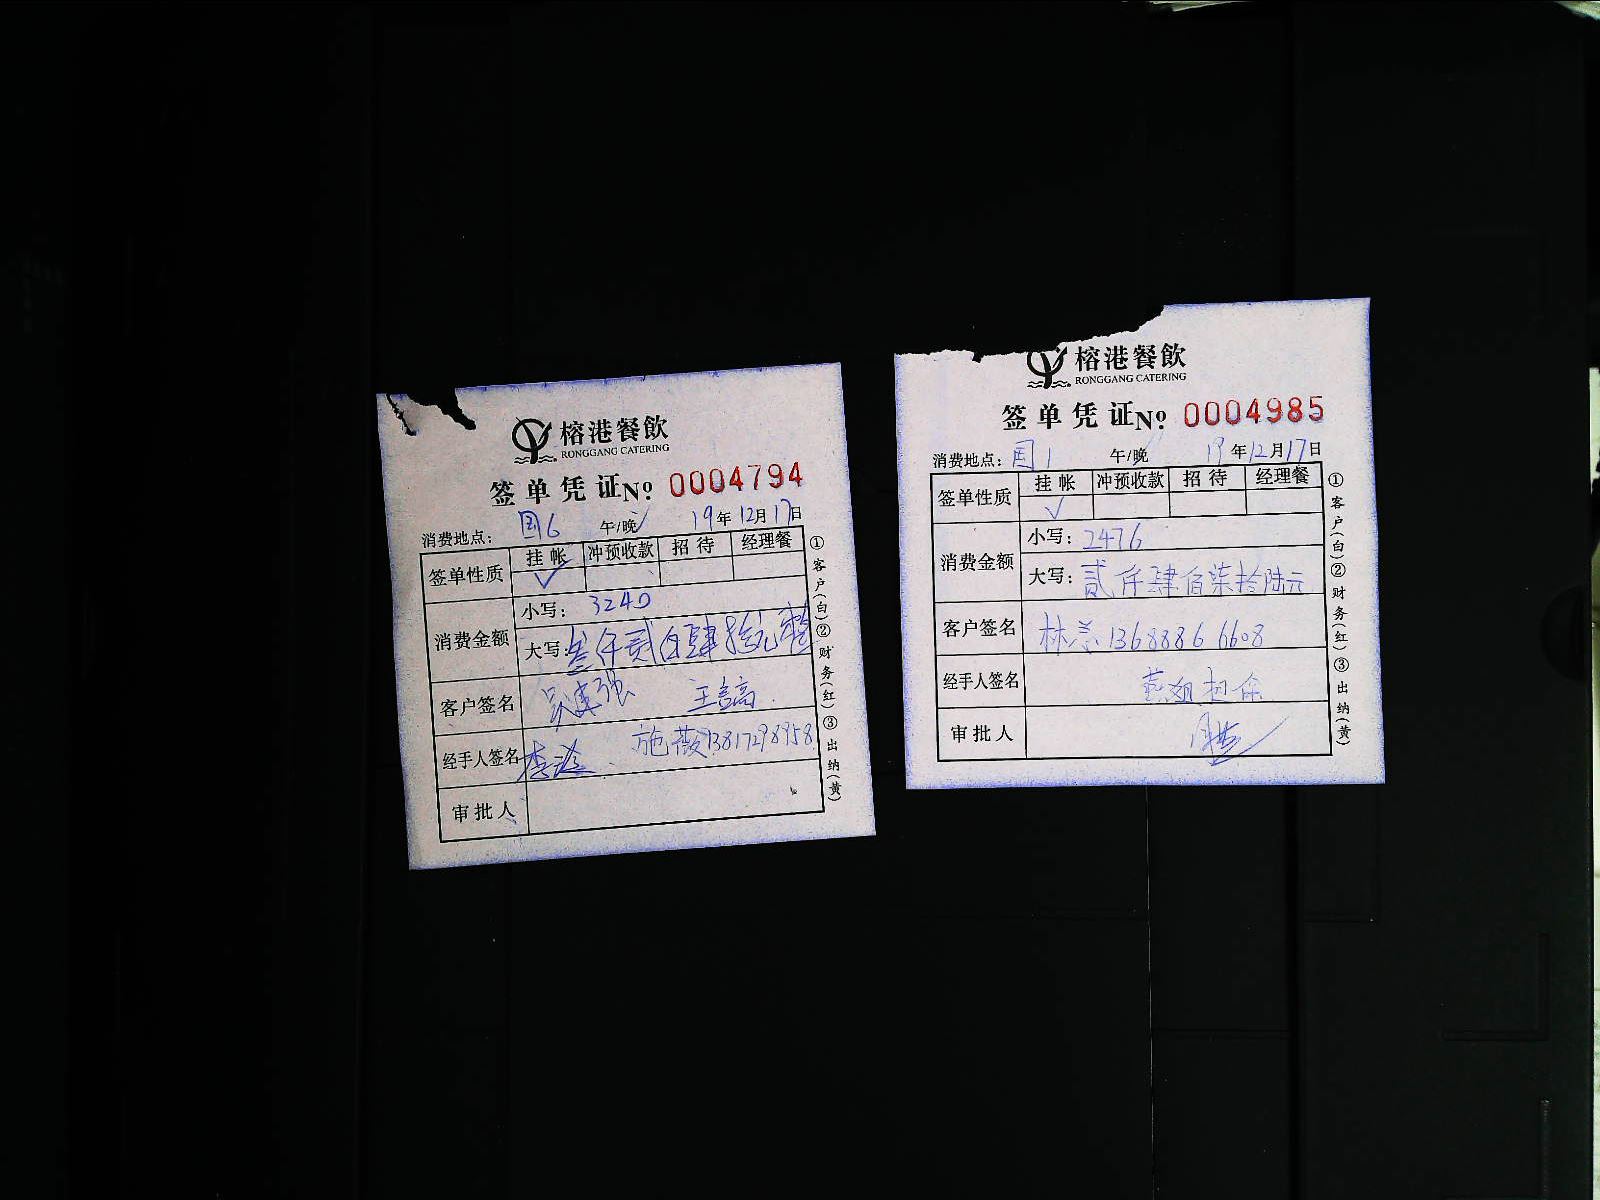 榕港餐飲
RONGGANG CATERING
签单凭证№ 0004794
消费地点: 国6 午/晚√ 19年12月17日
签单性质 挂帐 冲预收款 招待 经理餐
√
消费金额 小写: 3240
大写: 叁仟贰佰肆拾元整
客户签名
经手人签名 施薇13817298958
审批人
①客户(白)②财务(红)③出纳(黄)
榕港餐飲
RONGGANG CATERING
签单凭证№ 0004985
消费地点: 国1 午/晚√ 19年12月17日
签单性质 挂帐 冲预收款 招待 经理餐
√
消费金额 小写: 2476
大写: 贰仟肆佰柒拾陆元
客户签名 林 13688866608
经手人签名
审批人
①客户(白)②财务(红)③出纳(黄)